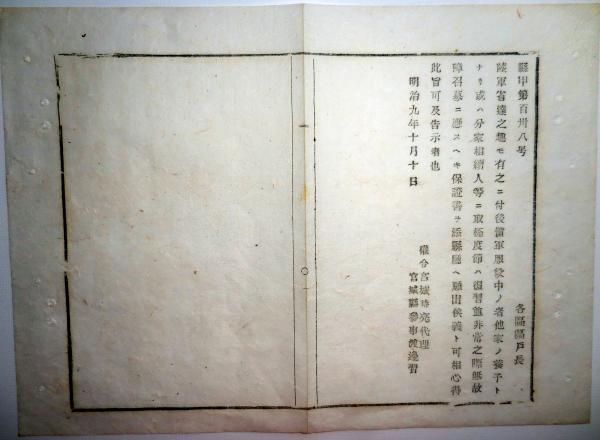 縣甲第百卅八号
各區區戸長
陸軍省達之趣モ有之ニ付後備軍服役中ノ者他家ノ養子ト
ナリ或ハ分家相續人等ニ取極度節ハ復習並非常之際無故
障召募ニ應スヘキ保證書ヲ添縣廳ヘ願出候義ト可相心得
此旨可及告示者也
明治九年十月十日
權令宮城時亮代理
宮城縣參事渡邊習